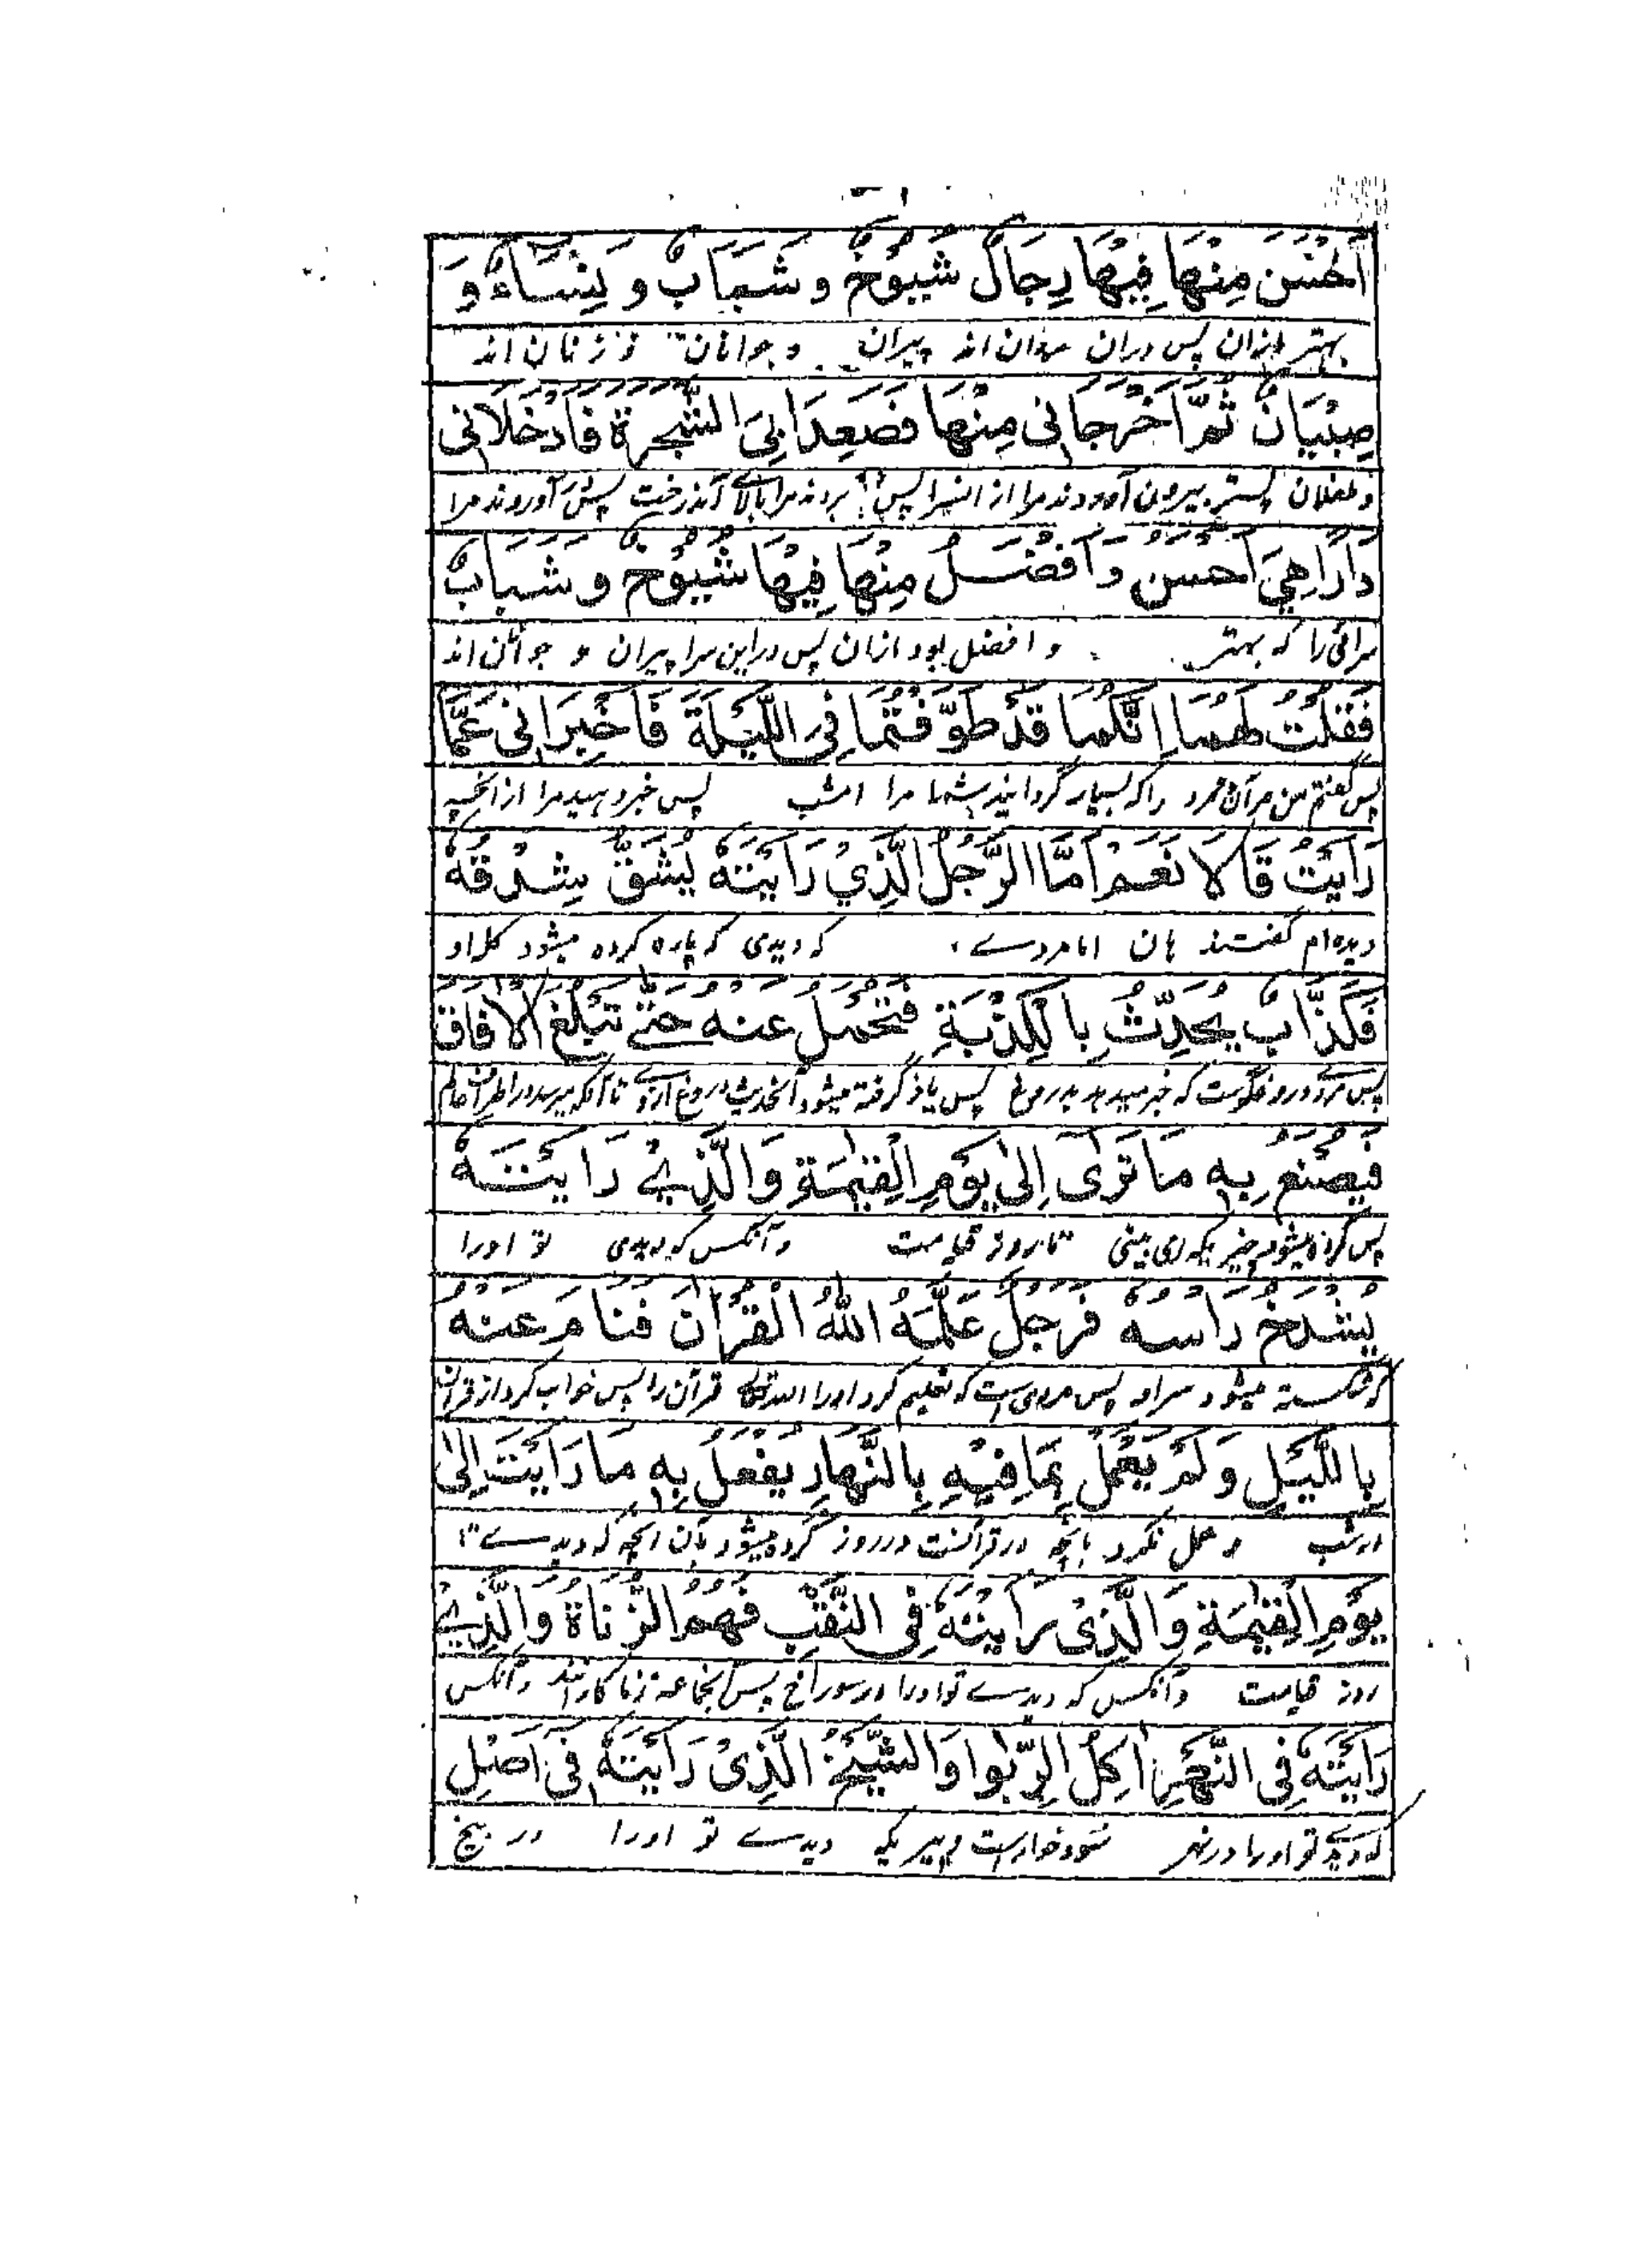 اَحْسَنَ مِنْهَا فِيْهَا رِجَالٌ شُيُوْخٌ وَشَبَابٌ وَنِسَاءٌ وَ
بهتر ازان پس دران مردان اند پیران و جوانان و زنان اند
صِبْيَانٌ ثُمَّ اَخْرَجَانِى مِنْهَا فَصَعِدَا بِىَ الشَّجَرَةَ فَاَدْخَلَانِى
و طفلان پستر بیرون آوردند مرا از انسرا پس بردند مرا بالاے آندرخت پس در آوردند مرا
دَارًا هِيَ اَحْسَنُ وَاَفْضَلُ مِنْهَا فِيْهَا شُيُوْخٌ وَشَبَابٌ
سرائی را که بهتر و افضل بود ازان پس دراین سرا پیران و جوانان اند
فَقُلْتُ لَهُمَا اِنَّكُمَا قَدْ طَوَّفْتُمَا فِى اللَّيْلَةَ فَاَخْبِرَانِى عَمَّا
پس گفتم من مرآن مرد را که بسیار گردانیدید شما مرا امشب پس خبر دهید مرا از آنچه
رَاَيْتُ قَالَا نَعَمْ اَمَّا الرَّجُلُ الَّذِيْ رَاَيْتَهٗ يُشَقُّ شِدْقُهٗ
دیده ام گفتند هان اما مردے که دیدی که پاره کرده میشود کله او
فَكَذَّابٌ يُحَدِّثُ بِالْكِذْبَةِ فَتُحْمَلُ عَنْهُ حَتّٰے تَبْلُغَ الْاٰفَاقَ
پس مردے دروغگوست که خبر میدهد بدروغ پس یاد گرفته میشود آنحدیث دروغ ازوے تا آنکه میرسد در اطراف عالم
فَيُصْنَعُ بِهٖ مَا تَرٰى اِلٰى يَوْمِ الْقِيٰمَةِ وَالَّذِيْ رَاَيْتَهٗ
پس کرده میشود چیزیکه می بینی تا روز قیامت و آنکس که دیدی تو اورا
يُشْدَخُ رَاْسُهٗ فَرَجُلٌ عَلَّمَهُ اللّٰهُ الْقُرْاٰنَ فَنَامَ عَنْهُ
که شکسته میشود سر او پس مردی است که تعلیم کرد اورا الله تعالی قرآن را پس خواب کرد از قرآن
بِاللَّيْلِ وَلَمْ يَعْمَلْ بِمَا فِيْهِ بِالنَّهَارِ يُفْعَلُ بِهٖ مَا رَاَيْتَ اِلٰى
در شب و عمل نکرد بانچه در قرآنست در روز کرده میشود بآن آنچه که دیدے تا
يَوْمِ الْقِيٰمَةِ وَالَّذِىْ رَاَيْتَهٗ فِى النَّقْبِ فَهُمُ الزُّنَاةُ وَالَّذِيْ
روز قیامت و آنکس که دیدے تو اورا در سوراخ پس آنجماعه زناکارانند و آنکس
رَاَيْتَهٗ فِى النَّهْرِ اٰكِلُ الرِّبٰوا وَالشَّيْخُ الَّذِىْ رَاَيْتَهٗ فِىْ اَصْلِ
که دیدے تو اورا در نهر سود خوارست و پیریکه دیدے تو اورا در بیخ